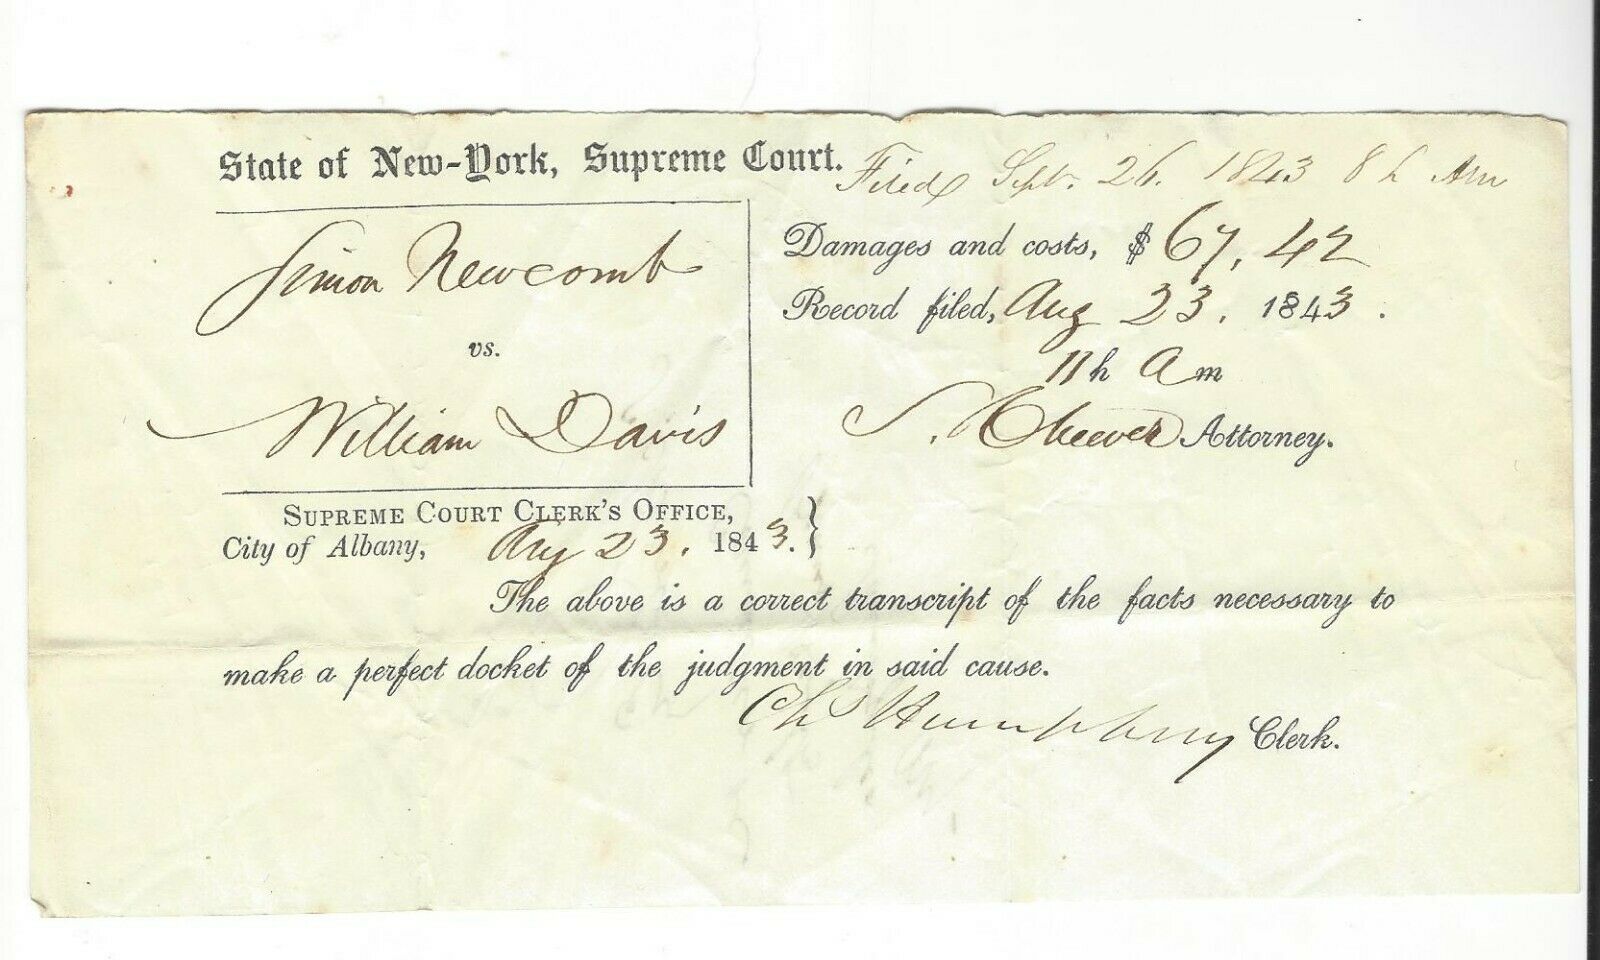 State of New-York, Supreme Court. Filed Sept. 26. 1843 8 h Am
Simon Newcomb
vs.
William Davis
Damages and costs, $ 67,42
Record filed, Aug 23. 1843.
11h Am
S. Cheever Attorney.
SUPREME COURT CLERK'S OFFICE,
City of Albany, Aug 23. 1843. }
The above is a correct transcript of the facts necessary to
make a perfect docket of the judgment in said cause.
Chs Humphrey Clerk.